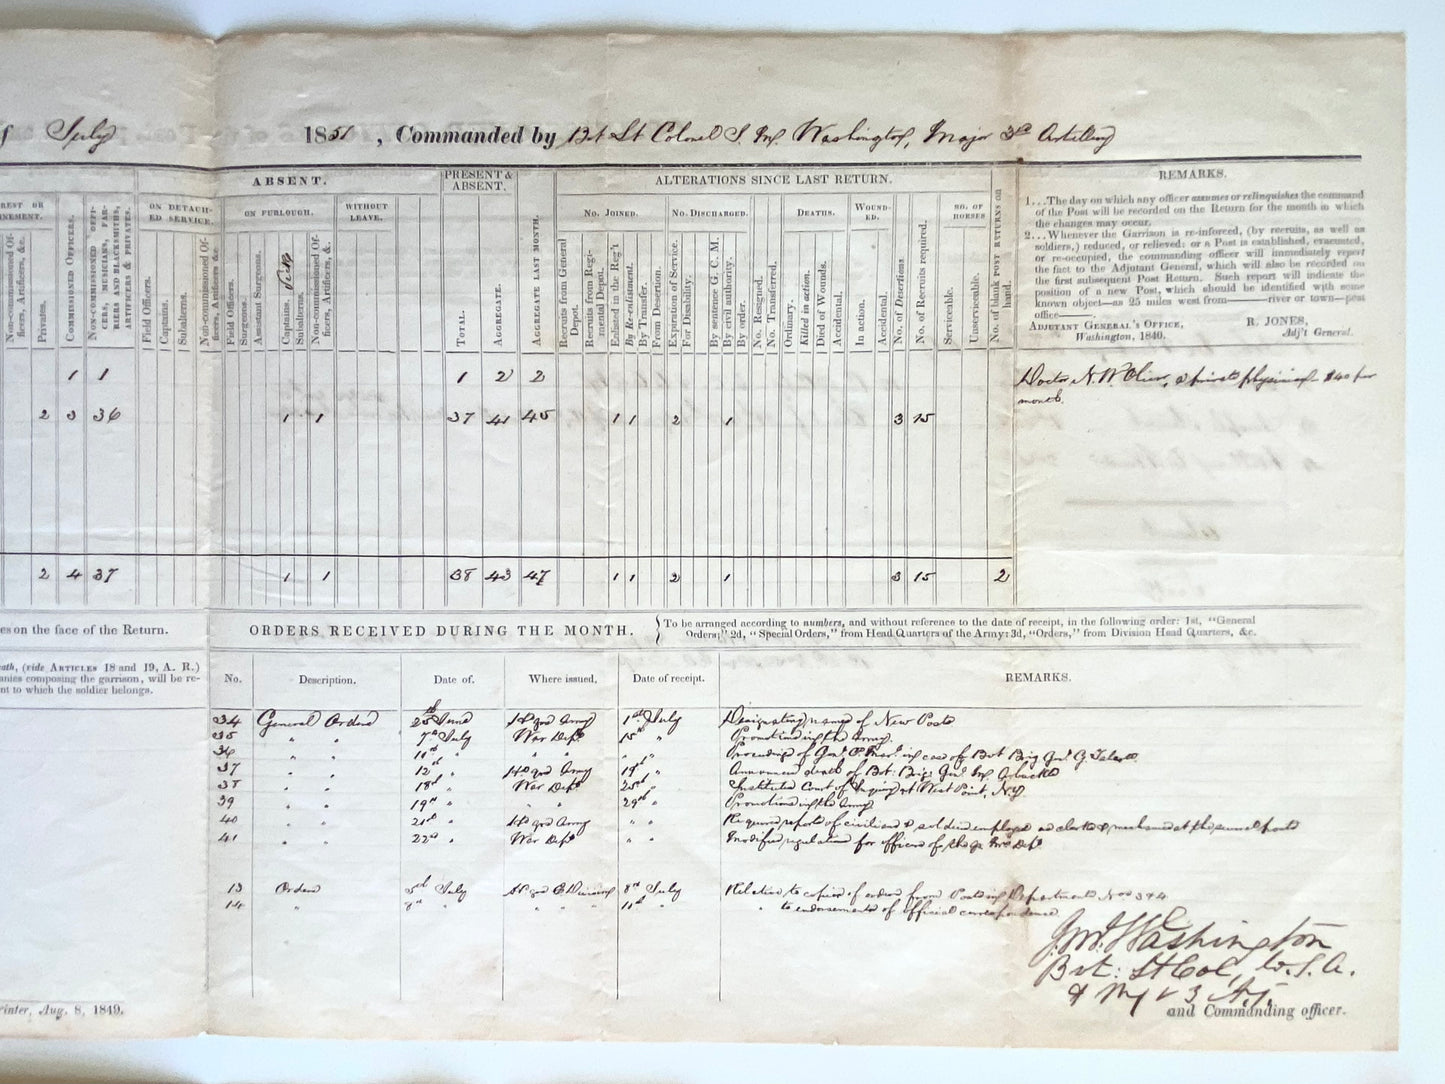 July 1851, Commanded by Bvt Lt Colonel J. M. Washington, Major 3rd Artillery
ABSENT.
PRESENT & ABSENT.
ALTERATIONS SINCE LAST RETURN.
REMARKS.
ON DETACHED SERVICE.
ON FURLOUGH.
WITHOUT LEAVE.
No. Joined.
No. Discharged.
Deaths.
Wounded.
No. of Horses
Non-commissioned Officers, Artificers, &c.
Privates.
Commissioned Officers.
Non-commissioned Officers, Musicians, Farriers and Blacksmiths, Artificers & Privates.
Field Officers.
Captains.
Subalterns.
Non-commissioned Officers, Artificers &c
Field Officers.
Surgeons.
Assistant Surgeons.
Captains.
Subalterns.
Non-commissioned Officers, Artificers, &.
Total.
Aggregate.
Aggregate last month.
Recruits from General Depot.
Recruits from Regimental Depot.
Enlisted in the Reg't
By Re-enlistment.
By Transfer.
From Desertion.
Expiration of Service.
For Disability.
By sentence G. C. M.
By civil authority.
By order.
No. Resigned.
No. Transferred.
Ordinary.
Killed in action.
Died of Wounds.
Accidental.
In action.
Accidental.
No. of Desertions
No. of Recruits required.
Serviceable.
Unserviceable.
No. of blank Post Returns on hand.
1...The day on which any officer assumes or relinquishes the command
of the Post will be recorded on the Return for the month in which
the changes may occur.
2...Whenever the Garrison is re-inforced, (by recruits, as well as
soldiers,) reduced, or relieved: or a Post is established, evacuated,
or re-occupied, the commanding officer will immediately report
the fact to the Adjutant General, which will also be recorded on
the first subsequent Post Return. Such report will indicate the
position of a new Post, which should be identified with some
known object—as 25 miles west from———river or town—post
office———.
Adjutant General's Office,
Washington, 1849.
R. JONES,
Adj't General.
1 1 1 2 2
2 3 36 1 1 37 41 45 1 1 2 1 3 15
per month.
2 4 37 1 1 38 43 47 1 1 2 1 3 15 2
es on the face of the Return.
ath, (vide Articles 18 and 19, A. R.)
anies composing the garrison, will be re-
nt to which the soldier belongs.
ORDERS RECEIVED DURING THE MONTH.
To be arranged according to numbers, and without reference to the date of receipt, in the following order: 1st, "General
Orders;" 2d, "Special Orders," from Head Quarters of the Army: 3d, "Orders," from Division Head Quarters, &c.
No. Description. Date of. Where issued, Date of receipt. REMARKS.
34 General Orders 25th June Hd qrs Army 1st July Designating names of New Posts
35 " " 7th July War Dept 15th " Promotions in the Army.
36 " " 11th " " "
37 " " 12th " Hd qrs Army 19th " Announces death of Bvt: Brig: Genl M. Arbuckle
38 " " 18th " War Dept 25th " Instituted Court of Inquiry at West Point, N.Y.
39 " " 19th " " " 29th " Promotions in the Army
40 " " 21st " Hd qrs Army " " Requires reports of civilians & soldiers employed as clerks & mechanics at the several posts
41 " " 22nd " War Dept " " Modifies regulations for officers of the Qr Mrs Dept.
13 Orders 3rd July Hd qrs E Division 8th July Relative to copies of orders from Posts in Department Nos 3 & 4
14 " 8th " " " " 11th " " to endorsements of official correspondence
J. M. Washington
Bvt: Lt Col, U.S.A.
& Maj 3 Art.
and Commanding officer.
rinter, Aug. 8, 1849.